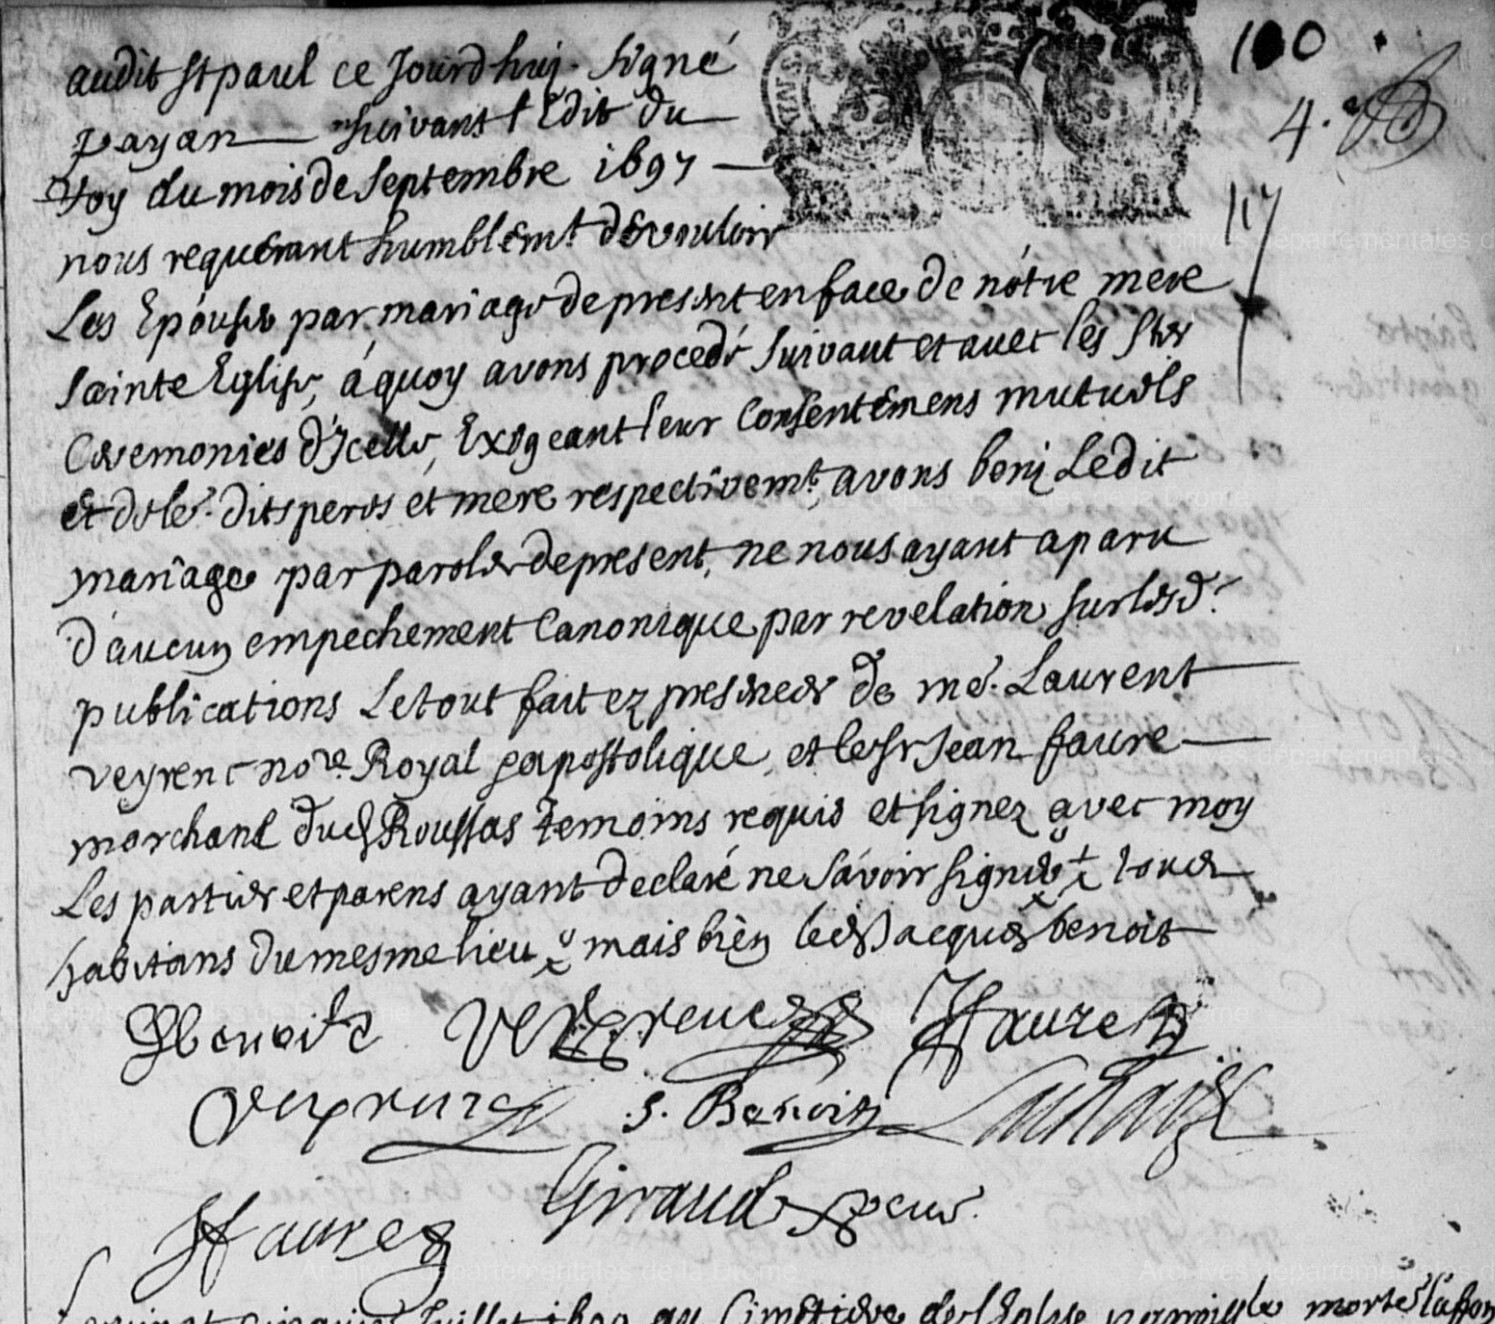 100
4.e
audit st paul ce Jourdhuy. Signé
payan — suivant l'Edit du
Roy du mois de Septembre 1697 —
117
nous requerant humblemt. de vouloir
Les Epouser par mariage de present en face de nótre mere
Sainte Eglise, á quoy avons procedé suivant et avec les stes
Ceremonies d'Icelle, Exigeant leur Consentemens mutuels
et de lesdits peres et mere respectivemt, avons beni Ledit
mariage par paroles de present, ne nous ayant aparu
d'aucun empechement Canonique par revelation sur lesd.
publications Le tout fait ez presences de me. Laurent
veyrenc nore. Royal & apostolique, et le sr Jean faure —
marchant dud Roussas temoins requis et signez avec moy
Les parties et parens ayant declaré ne sávoir signer + tous
habitans du mesme lieu x mais bien led Jacques benoit
Benoit Veyrenc JFaure
Veyrenc S. Benoit
JFaure Giraud